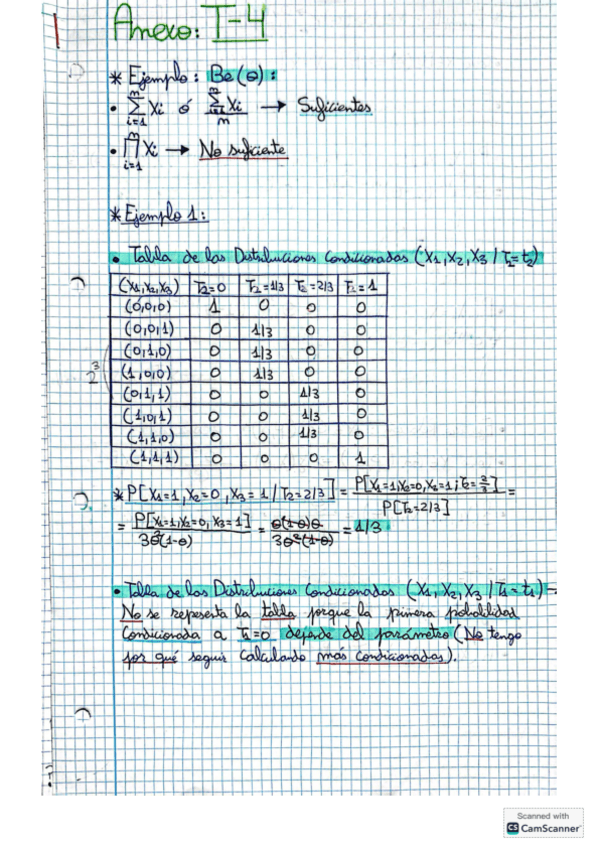 Anexo: T-4
* Ejemplo: Be(θ):
• ∑ᵢ₌₁ᵐ Xi ó ∑ᵢ₌₁ᵐ Xi / m → Suficientes
• ∏ᵢ₌₁ᵐ Xi → No suficiente
* Ejemplo 1:
• Tabla de las Distribuciones Condicionadas (X1, X2, X3 / T2 = t2)
(X1, X2, X3) T2=0 T2=1/3 T2=2/3 T2=1
(0,0,0) 1 0 0 0
(0,0,1) 0 1/3 0 0
(0,1,0) 0 1/3 0 0
2³ (1,0,0) 0 1/3 0 0
(0,1,1) 0 0 1/3 0
(1,0,1) 0 0 1/3 0
(1,1,0) 0 0 1/3 0
(1,1,1) 0 0 0 1
* P[X1=1, X2=0, X3=1 / T2=2/3] = P[X1=1, X2=0, X3=1; T2=2/3] / P[T2=2/3] =
= P[X1=1, X2=0, X3=1] / 3θ²(1-θ) = θ(1-θ)θ / 3θ²(1-θ) = 1/3
• Tabla de las Distribuciones Condicionadas (X1, X2, X3 / T1 = t1) →
No se representa la tabla porque la primera probabilidad
Condicionada a T1=0 depende del parámetro (No tengo
por qué seguir calculando más condicionadas).
Scanned with
CS CamScanner